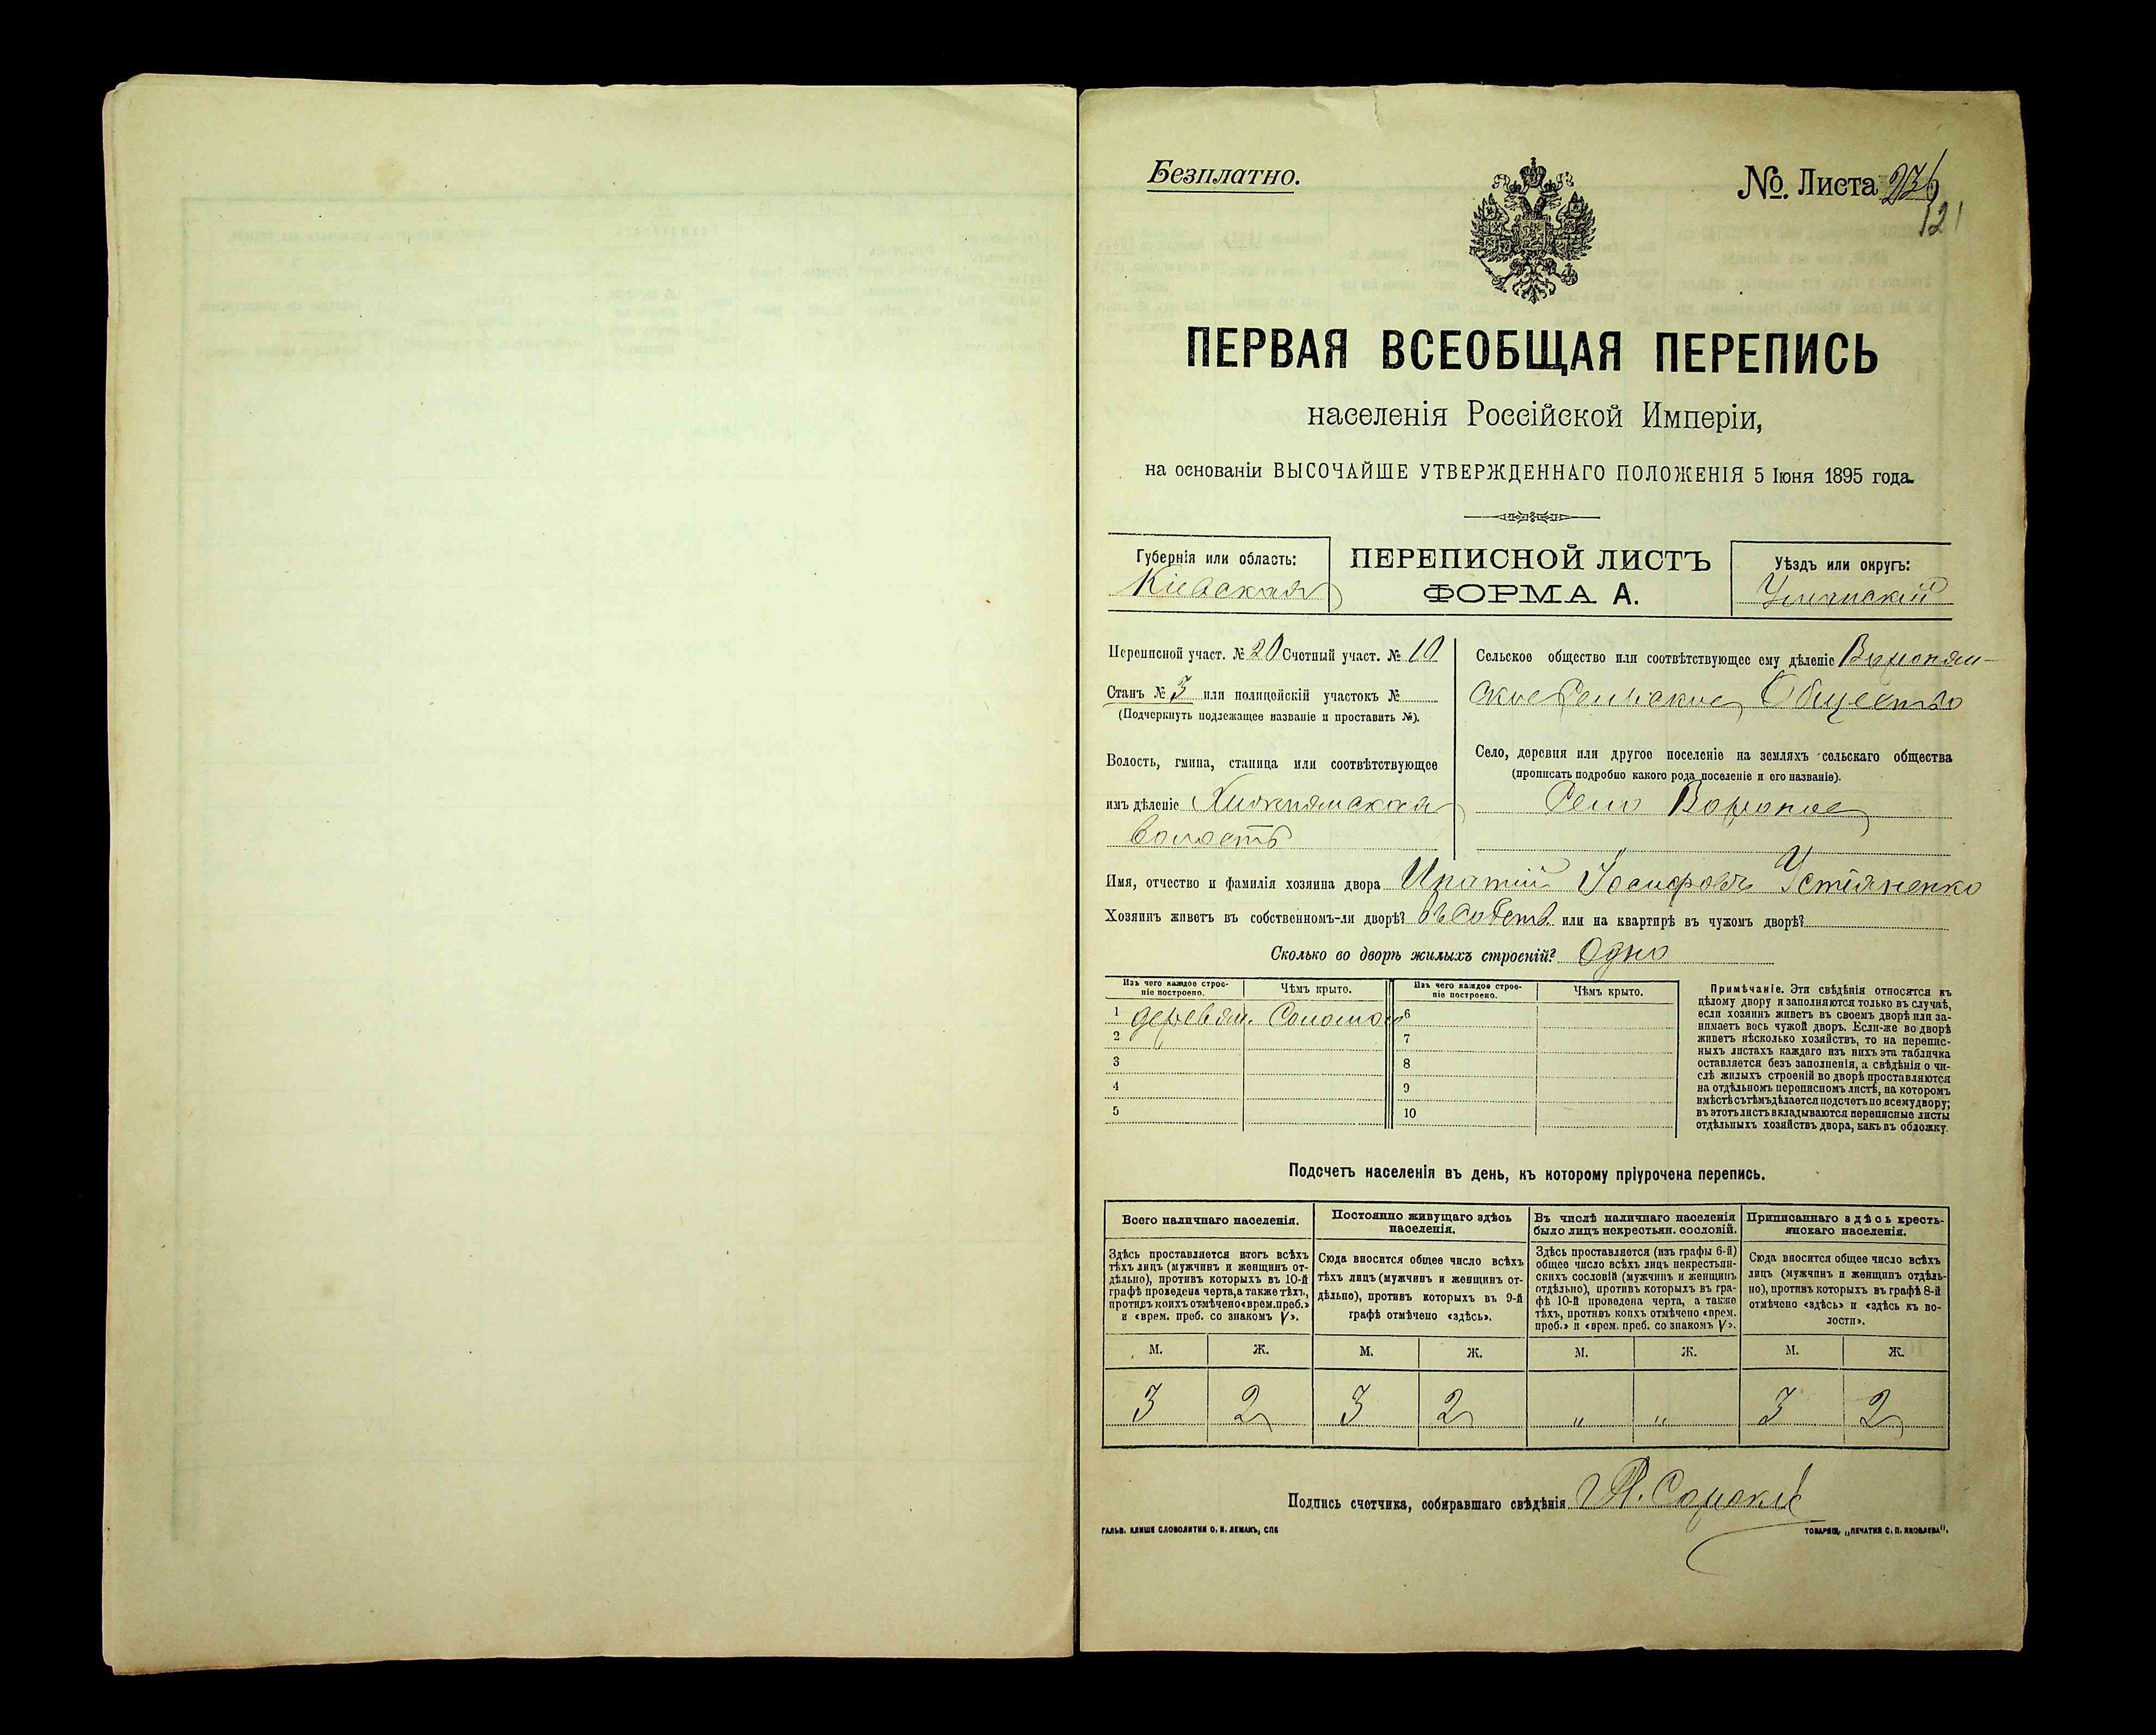 Безплатно.
№. Листа 236
121
ПЕРВАЯ ВСЕОБЩАЯ ПЕРЕПИСЬ
населенія Россійской Имперіи,
на основаніи ВЫСОЧАЙШЕ УТВЕРЖДЕННАГО ПОЛОЖЕНІЯ 5 Іюня 1895 года.
Губернія или область:
Кіевская
ПЕРЕПИСНОЙ ЛИСТЪ
ФОРМА А.
Уѣздъ или округъ:
Уманскій
Переписной участ. № 20 Счетный участ. № 10
Станъ № 3 или полицейскій участокъ №
(Подчеркнуть подлежащее названіе и проставить №).
Волость, гмина, станица или соотвѣтствующее
имъ дѣленіе
волость
Сельское общество или соотвѣтствующее ему дѣленіе
ское Сельское Общество
Село, деревня или другое поселеніе на земляхъ сельскаго общества
(прописать подробно какого рода поселеніе и его названіе).
Село Вороное
Имя, отчество и фамилія хозяина двора Игнатій Іосифовъ Устіяненко
Хозяинъ живетъ въ собственномъ-ли дворѣ? въ собств. или на квартирѣ въ чужомъ дворѣ?
Сколько во дворѣ жилыхъ строеній? Одно
Изъ чего каждое строе-
ніе построено.
Чѣмъ крыто.
Изъ чего каждое строе-
ніе построено.
Чѣмъ крыто.
1 деревян. Солома 6
2 7
3 8
4 9
5 10
Примѣчаніе. Эти свѣдѣнія относятся къ
цѣлому двору и заполняются только въ случаѣ,
если хозяинъ живетъ въ своемъ дворѣ или за-
нимаетъ весь чужой дворъ. Если-же во дворѣ
живетъ нѣсколько хозяйствъ, то на перепис-
ныхъ листахъ каждаго изъ нихъ эта табличка
оставляется безъ заполненія, а свѣдѣнія о чи-
слѣ жилыхъ строеній во дворѣ проставляются
на отдѣльномъ переписномъ листѣ, на которомъ
вмѣстѣ съ тѣмъ дѣлается подсчетъ по всему двору;
въ этотъ листъ вкладываются переписные листы
отдѣльныхъ хозяйствъ двора, какъ въ обложку.
Подсчетъ населенія въ день, къ которому пріурочена перепись.
Всего наличнаго населенія.
Здѣсь проставляется итогъ всѣхъ
тѣхъ лицъ (мужчинъ и женщинъ от-
дѣльно), противъ которыхъ въ 10-й
графѣ проведена черта, а также тѣхъ,
противъ коихъ отмѣчено «врем. преб.»
и «врем. преб. со знакомъ V».
Постоянно живущаго здѣсь
населенія.
Сюда вносится общее число всѣхъ
тѣхъ лицъ (мужчинъ и женщинъ от-
дѣльно), противъ которыхъ въ 9-й
графѣ отмѣчено «здѣсь».
Въ числѣ наличнаго населенія
было лицъ некрестьян. сословій.
Здѣсь проставляется (изъ графы 6-й)
общее число всѣхъ лицъ некрестьян-
скихъ сословій (мужчинъ и женщинъ
отдѣльно), противъ которыхъ въ гра-
фѣ 10-й проведена черта, а также
тѣхъ, противъ коихъ отмѣчено «врем.
преб.» и «врем. преб. со знакомъ V».
Приписаннаго здѣсь кресть-
янскаго населенія.
Сюда вносится общее число всѣхъ
лицъ (мужчинъ и женщинъ отдѣль-
но), противъ которыхъ въ графѣ 8-й
отмѣчено «здѣсь» и «здѣсь къ во-
лости».
М. Ж. М. Ж. М. Ж. М. Ж.
3 2 3 2 " " 3 2
Подпись счетчика, собиравшаго свѣдѣнія
ГАЛЬВ. КЛИШЕ СЛОВОЛИТНИ О. И. ЛЕМАНЪ, СПБ
ТОВАРИЩ. „ПЕЧАТНЯ С. П. ЯКОВЛЕВА",